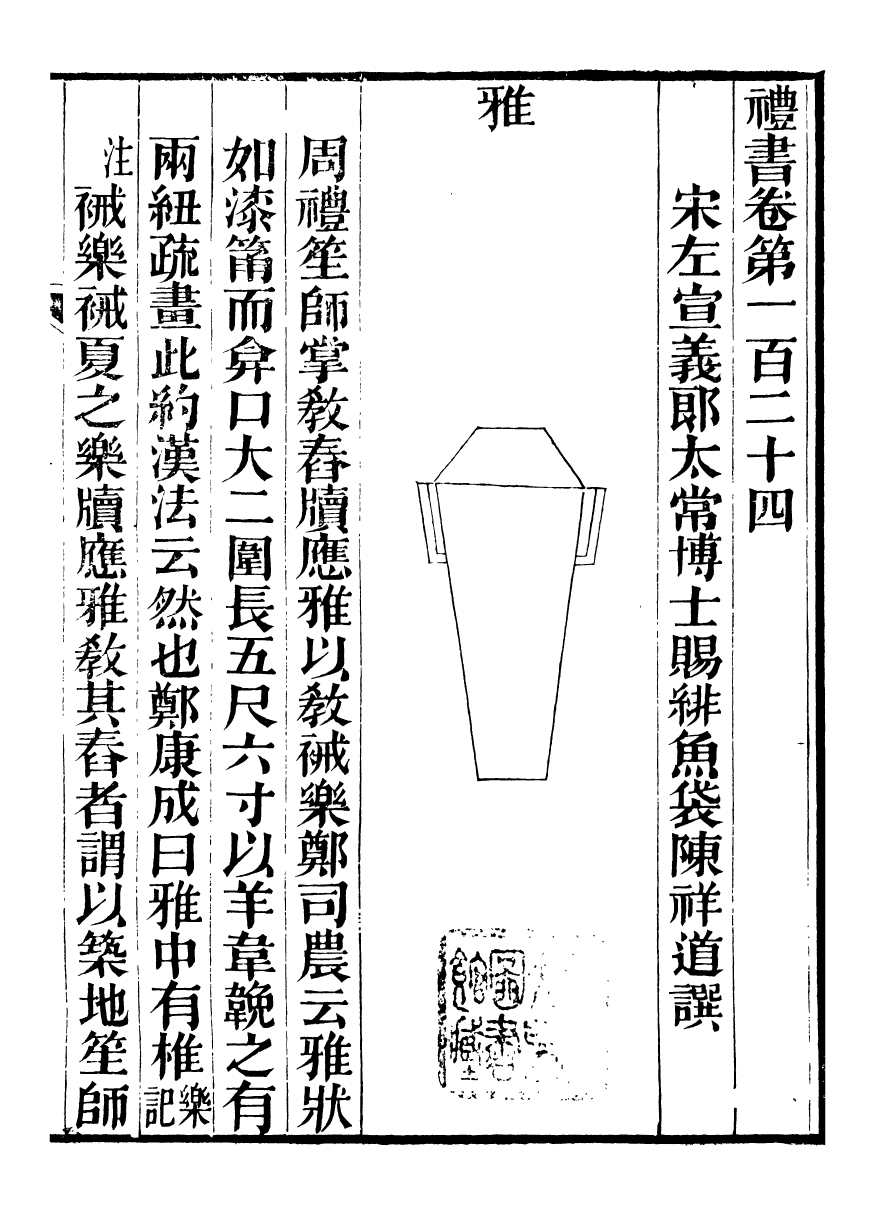 禮書卷第一百二十四
宋左宣義郎太常博士賜緋魚袋陳祥道譔
雅
周禮笙師掌教舂牘應雅以教祴樂鄭司農云雅狀
如漆筩而弇口大二圍長五尺六寸以羊韋鞔之有
兩紐疏畫此約漢法云然也鄭康成曰雅中有椎樂記
注祴樂祴夏之樂牘應雅教其舂者謂以築地笙師